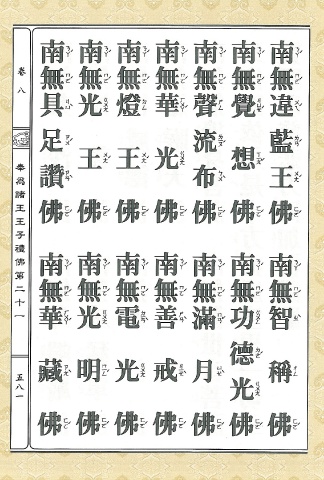 南無違藍王佛 南無智稱佛
南無覺想佛 南無功德光佛
南無聲流布佛 南無滿月佛
南無華光佛 南無善戒佛
南無燈王佛 南無電光佛
南無光王佛 南無光明佛
南無具足讚佛 南無華藏佛
卷八 奉為諸王王子禮佛第二十一 五八一